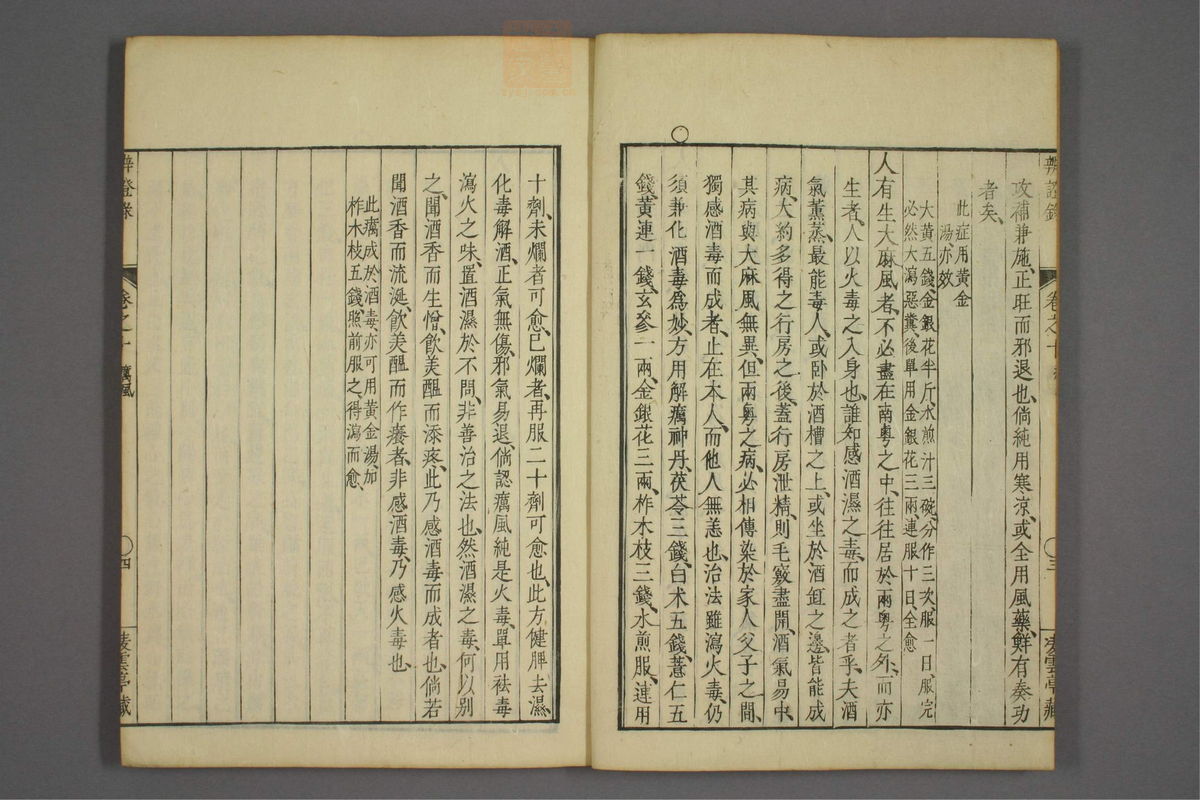 攻補兼施、正旺而邪退也、倘純用寒凉、或全用風藥、鮮有奏功
者矣、
此症用黃金
湯、亦效
大黃五錢、金銀花半斤、水煎汁三碗、分作三次、服一日、服完
必然大瀉惡糞、後單用金銀花三兩、連服十日、全愈
人有生大麻風者、不必盡在南粵之中、往往居於兩粵之外、而亦
生者、人以火毒之入身也、誰知感酒濕之毒、而成之者乎、夫酒
氣薰蒸、最能毒人、或卧於酒槽之上、或坐於酒缸之邊、皆能成
病、大約多得之行房之後、蓋行房泄精、則毛竅盡開、酒氣易中、
其病與大麻風無異、但兩粵之病、必相傳染於家人父子之間、
獨感酒毒而成者、止在本人、而他人無恙也、治法雖瀉火毒、仍
須兼化酒毒爲妙、方用解癘神丹、茯苓三錢、白术五錢、薏仁五
錢、黃連一錢、玄參一兩、金銀花三兩、柞木枝三錢、水煎服、連用
十劑、未爛者可愈、已爛者、再服二十劑可愈也、此方健脾去濕、
化毒解酒、正氣無傷、邪氣易退、倘認癘風純是火毒、單用袪毒
瀉火之味、置酒濕於不問、非善治之法也、然酒濕之毒、何以別
之、聞酒香而生憎、飲美醞而添疼、此乃感酒毒而成者也、倘若
聞酒香而流涎、飲美醞而作癢者、非感酒毒、乃感火毒也、
此癘成於酒毒、亦可用黃金湯、加
柞木枝五錢、照前服之、得瀉而愈、
辨證錄
卷之十
癘風
四
凌雲亭藏